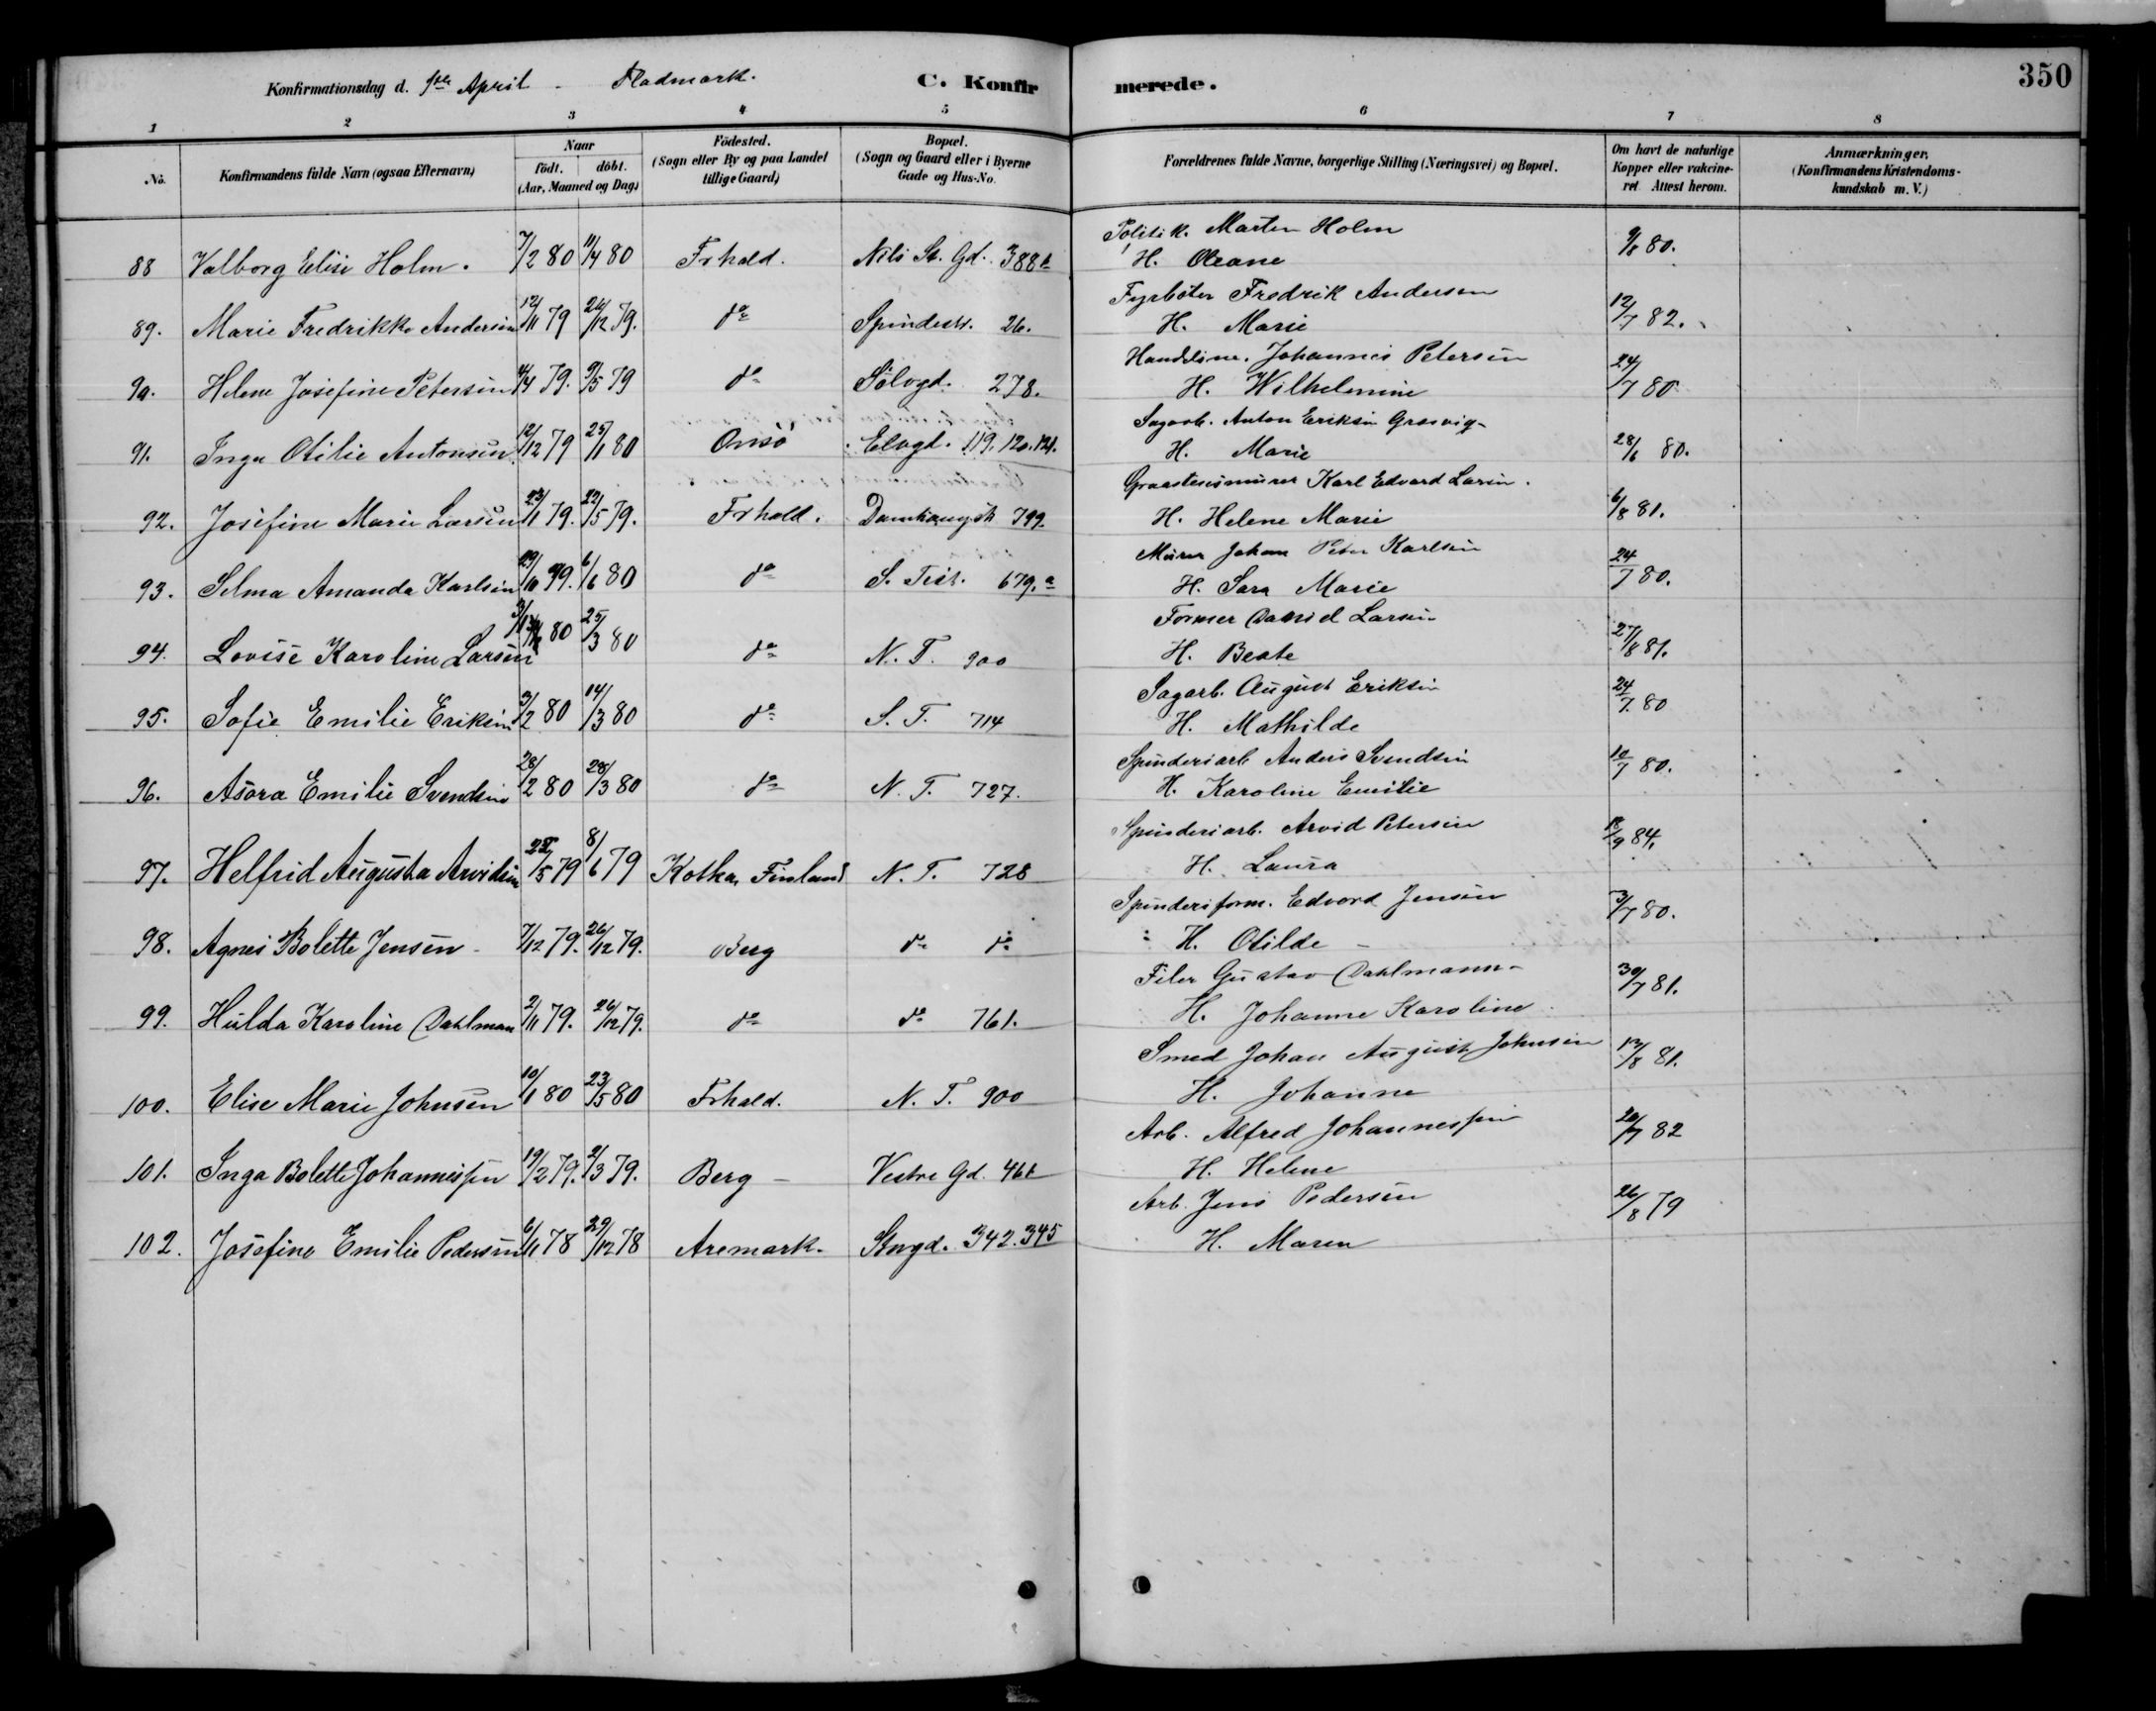 Konfirmationsdag d. 1ste April - Fladmark.
C. Konfirmerede.
350
1 2 3 4 5 6 7 8
No. Konfirmandens fulde Navn (ogsaa Efternavn) Naar födt. döbt. (Aar, Maaned og Dag) Födested. (Sogn eller By og paa Landet tillige Gaard) Bopæl. (Sogn og Gaard eller i Byerne Gade og Hus-No. Forældrenes fulde Navne, borgerlige Stilling (Næringsvei) og Bopæl. Om havt de naturlige Kopper eller vakcineret Attest herom. Anmærkninger, (Konfirmandens Kristendomskundskab m. V.)
Politik. Martin Holm
88 Valborg Elise Holm. 7/2 80 11/4 80 Frhald. Nils St. Gd. 388 b H. Oleane 9/8 80.
Fyrböter Fredrik Andersen
89. Marie Fredrikke Andersen 12/11 79 26/12 79. do Spindestr. 26. H. Marie 12/7 82.
Handelsm. Johannes Petersen
90. Helene Josefine Petersen 4/4 79. 9/5 79 do Sölvgd. 278. H. Wilhelmine 24/7 80
Sagarb. Anton Eriksen Gresvig
91. Inga Otilie Antonsen 12/12 79 25/1 80 Onsö Elvgd. 119. 120. 121. H. Marie 28/6 80.
Graastensmurer Karl Edvard Larsen.
92. Josefine Marie Larsen 23/1 79. 22/5 79. Frhald. Damhaugst 799. H. Helene Marie 6/8 81.
Murer Johan Peter Karlsen
93. Selma Amanda Karlsen 19/10 79. 6/6 80 do S. Tist. 679. a H. Sara Marie 24/7 80.
Former Daniel Larsen
94. Lovise Karoline Larsen 80 25/3 80 do N. T. 900 H. Beate 27/8 81.
Sagarb. August Eriksen
95. Sofie Emilie Eriksen 3/2 80 14/3 80 do S. T. 714 H. Mathilde 24/7 80
Spinderiarb Anders Svendsen
96. Asora Emilie Svendsen 28/2 80 28/3 80 do N. T. 727. H. Karoline Emilie 10/7 80.
Spinderiarb. Arvid Petersen
97. Helfrid Augusta Arvidsen 25/5 79 8/6 79 Kotka, Finland N. T. 728 H. Laura 84.
Spinderiform. Edvard Jensen
98. Agnes Bolette Jensen 7/12 79. 26/12 79. Berg do do H. Otilde 3/7 80.
Filer Gustav Dahlmann
99. Hulda Karoline Dahlman 2/11 79. 26/12 79. do do 761. H. Johanne Karoline 30/7 81.
Smed Johan August Johnsen
100. Elise Marie Johnsen 10/1 80 23/5 80 Frhald. N. T. 900 H. Johanne 13/8 81.
Arb. Alfred Johannessen
101. Inga Bolette Johannessen 19/2 79. 2/3 79. Berg Vestre Gd. 461 H. Helene 20/7 82
Arb. Jens Pedersen
102. Josefine Emilie Pedersen 6/11 78 29/12 78 Aremark. Stngd. 342. 345 H. Maren 26/8 79